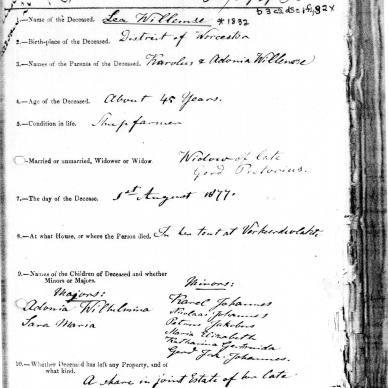 1.—Name of the Deceased. Lea Willemse *1832
2.—Birth-place of the Deceased. District of Worcester
3.—Names of the Parents of the Deceased. Karolus & Adonia Willemse
4.—Age of the Deceased. About 45 Years.
5.—Condition in life. Sheep farmer
—Married or unmarried, Widower or Widow. Widow of late
Pretorius.
7.—The day of the Decease. 1st August 1877.
8.—At what House, or where the Person died. In her tent at
9.—Names of the Children of Deceased and whether
Minors or Majors.
Majors: Minors:
Adonia Wilhelmina Karel Johannes
Sara Maria Nicolas Johannes
Petrus Jakobus
Maria Elizabeth
Katharina Gertruida
Johannes.
10.—Whether Deceased has left any Property, and of
what kind.
A share in joint Estate of her late